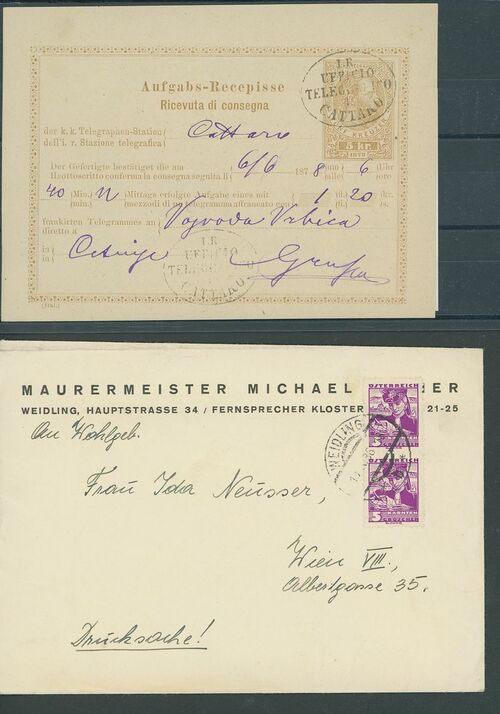 I.R.
UFFICIO
TELEGRAFICO
CATTARO
Aufgabs-Recepisse
Ricevuta di consegna
5 kr.
der k.k. Telegraphen-Station
dell'i. r. Stazione telegrafica
Cattaro
Der Gefertigte bestätiget die am
Il sottoscritto conferma la consegna seguita il
6/6 187 8 6 Uhr
ore
40 (Min.) N Mittags erfolgte Aufgabe eines mit 1 (fl.) 20 kr.
(m.) mezzodì di un telegramma affrancato con (fl.) s.
frankirten Telegrammes an
diretto a
Vojvoda Vrbica
in
in
Cetinje
I.R.
UFFICIO
TELEGRAFICO
CATTARO
(Ital.)
MAURERMEISTER MICHAEL ER
WEIDLING, HAUPTSTRASSE 34 / FERNSPRECHER KLOSTER 21-25
ÖSTERREICH
WEIDLING
An Wohlgeb.
Frau Ida Neusser,
5
KÄRNTEN
GROSCHEN
Wien VIII.,
Albertgasse 35.
Drucksache!